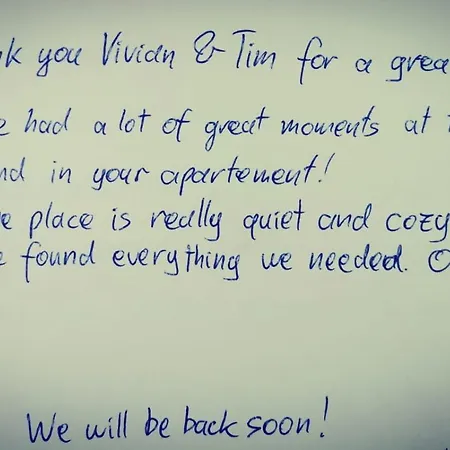 k you Vivian & Tim for a grea
e had a lot of great moments at t
nd in your apartement!
e place is really quiet and cozy
e found everything we needed. O
We will be back soon!